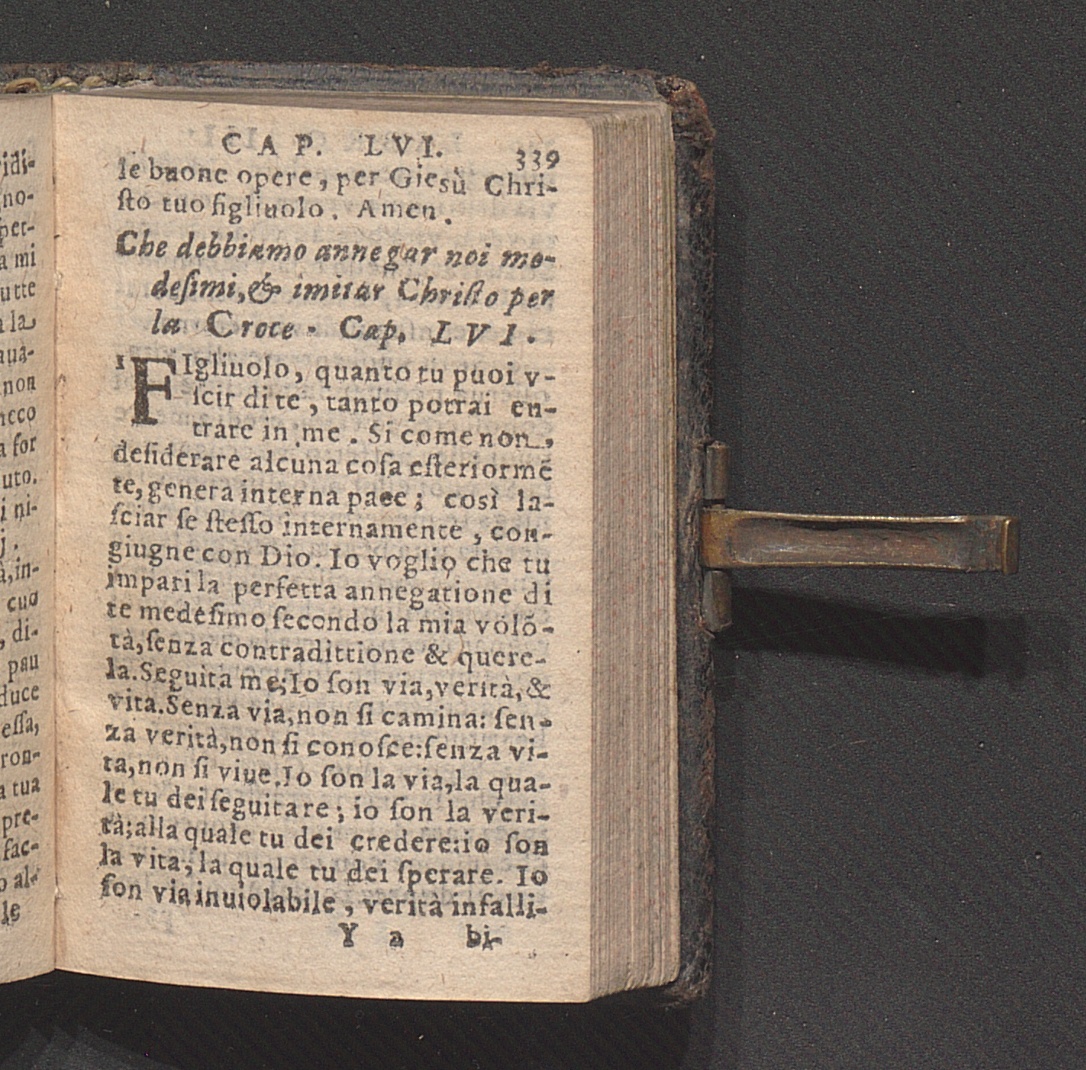 CAP. LVI. 339
le buone opere, per Giesù Chri-
ſto tuo figliuolo. Amen.
Che debbiamo annegar noi me-
deſimi, & imitar Chriſto per
la Croce. Cap. LVI.
1 FIgliuolo, quanto tu puoi v-
ſcir di te, tanto potrai en-
trare in me. Si come non,
deſiderare alcuna coſa eſteriormẽ
te, genera interna pace; così la-
ſciar ſe ſteſſo internamente, con-
giugne con Dio. Io voglio che tu
impari la perfetta annegatione di
te medeſimo ſecondo la mia volõ-
tà, ſenza contradittione & quere-
la. Seguita me; Io ſon via, verità, &
vita. Senza via, non ſi camina: ſen-
za verità, non ſi conoſce: ſenza vi-
ta, non ſi viue. Io ſon la via, la qua-
le tu dei ſeguitare; io ſon la veri-
tà; alla quale tu dei credere: io ſon
la vita, la quale tu dei ſperare. Io
ſon via inuiolabile, verità infalli-
Y 2 bi-
idi-
no-
per-
a mi
utte
a la
qua-
non
meco
a for
uto.
i ni-
j.
à, in-
cuo
, di-
pau
duce
eſſa,
ron-
a tua
pre-
fac-
o al-
le